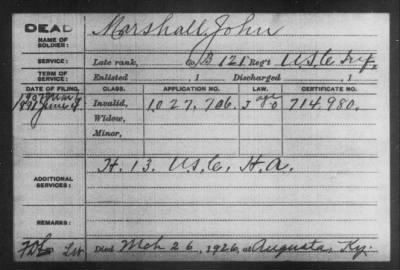 DEAD
Marshall, John
NAME OF SOLDIER:
SERVICE: Late rank, Co. B 121 Reg't U.S.C. Inf.
TERM OF SERVICE: Enlisted , 1 Discharged , 1
DATE OF FILING. CLASS. APPLICATION NO. LAW. CERTIFICATE NO.
1891 June Invalid, 1.027.706. 714.980.
Widow,
Minor,
H. 13. U.S.C. H.A.
ADDITIONAL SERVICES:
REMARKS:
Died Mch 26, 1926, at Augusta, Ky.